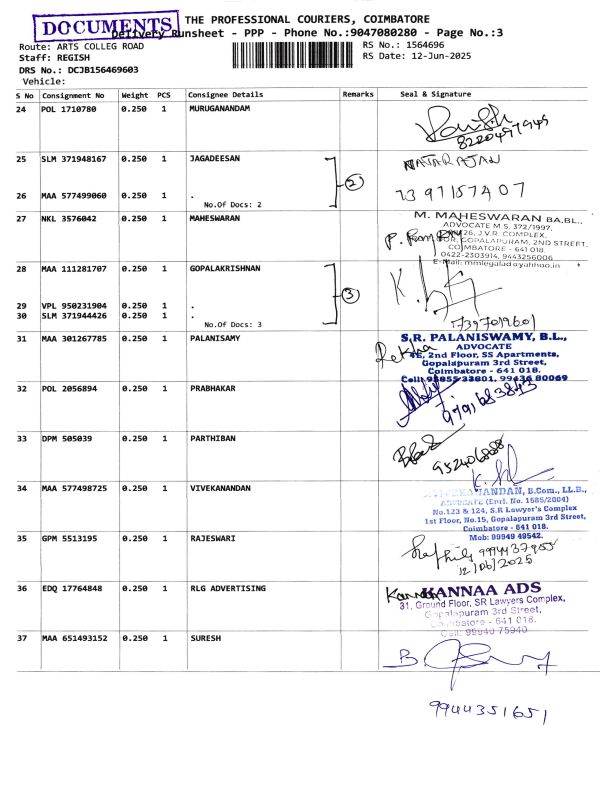 DOCUMENTS
THE PROFESSIONAL COURIERS, COIMBATORE
Delivery Runsheet - PPP - Phone No.:9047080280 - Page No.:3
Route: ARTS COLLEG ROAD
RS No.: 1564696
Staff: REGISH
RS Date: 12-Jun-2025
DRS No.: DCJB156469603
Vehicle:
S No Consignment No Weight PCS Consignee Details Remarks Seal & Signature
24 POL 1710780 0.250 1 MURUGANANDAM
8220497949
25 SLM 371948167 0.250 1 JAGADEESAN
NATARAJAN
2
26 MAA 577499060 0.250 1 .
No.Of Docs: 2
27 NKL 3576042 0.250 1 MAHESWARAN
M. MAHESWARAN BA,BL.,
ADVOCATE M.S. 372/1997,
J.V.R. COMPLEX,
GOPALAPURAM, 2ND STREET,
COIMBATORE - 641 018.
0422-2303914, 9443256006
28 MAA 111281707 0.250 1 GOPALAKRISHNAN
3
29 VPL 950231904 0.250 1 .
30 SLM 371944426 0.250 1 .
No.Of Docs: 3
31 MAA 301267785 0.250 1 PALANISAMY
S.R. PALANISWAMY, B.L.,
ADVOCATE
Rekha
2nd Floor, SS Apartments,
Gopalapuram 3rd Street,
Coimbatore - 641 018.
32 POL 2056894 0.250 1 PRABHAKAR
9791683843
33 DPM 505039 0.250 1 PARTHIBAN
34 MAA 577498725 0.250 1 VIVEKANANDAN
B.Com., LL.B.,
ADVOCATE (Enrl. No. 1585/2004)
No.123 & 124, S.R Lawyer's Complex
1st Floor, No.15, Gopalapuram 3rd Street,
Coimbatore - 641 018.
Mob: 99949 49542.
35 GPM 5513195 0.250 1 RAJESWARI
12/06/2025
36 EDQ 17764848 0.250 1 RLG ADVERTISING
KANNAA ADS
31, Ground Floor, SR Lawyers Complex,
Gopalapuram 3rd Street,
Coimbatore - 641 018.
Cell: 99940 75940
37 MAA 651493152 0.250 1 SURESH
B.
9944351651